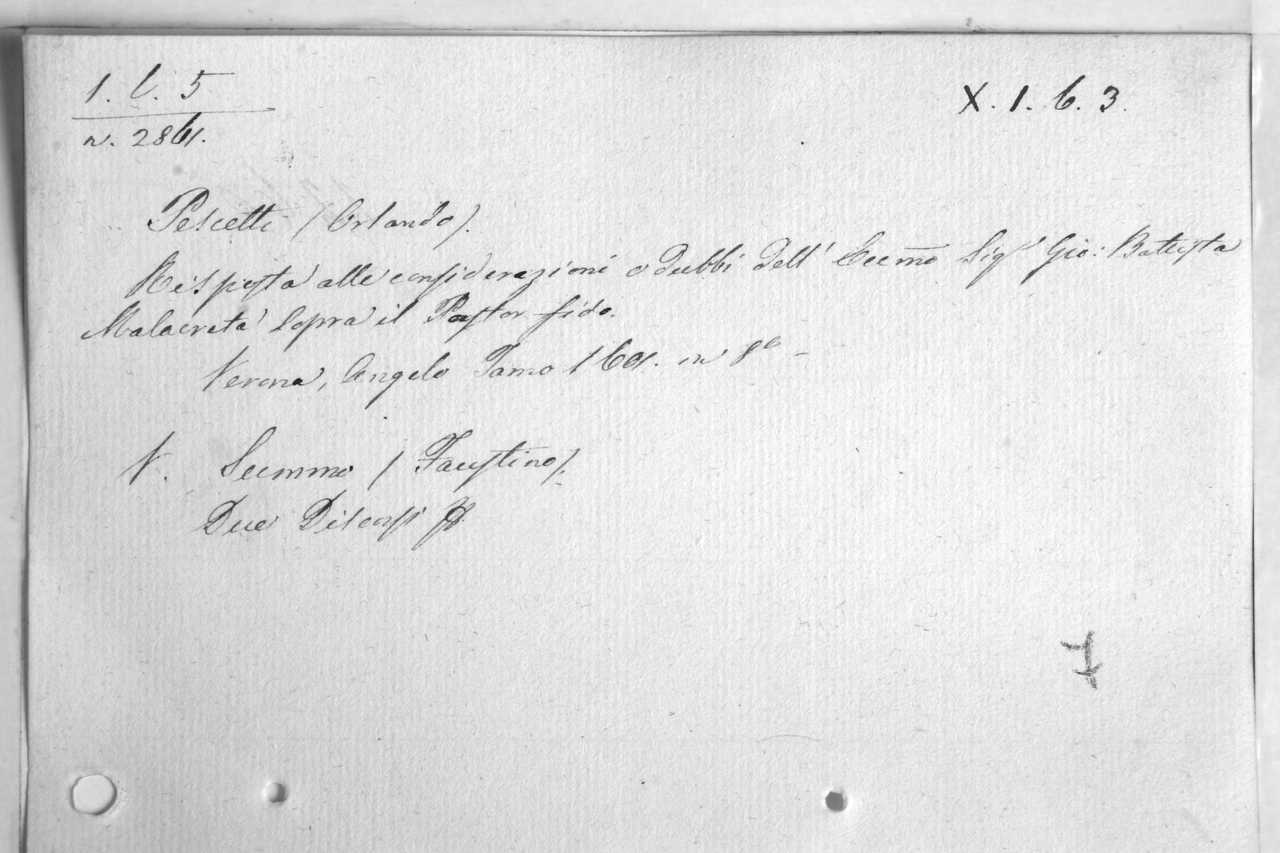 1. l. 5
X. 1. 6. 3.
n. 2861.
Pescetti (Orlando).
Risposta alle considerazioni o dubbi dell' Eccmo Sigr Gio: Battista
Malacreta sopra il Pastor fido.
Verona, Angelo Tamo 1601. in 8o
V. Summo (Faustino).
Due Discorsi